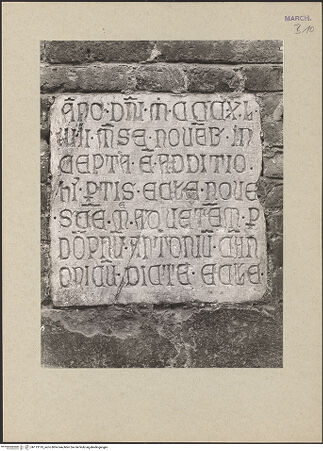 MARCH.
B 10
ANO · DNI · M · CCCXL
VIII · MSE · NOVEB · IN
CEPTA · E · ADDITIO ·
HI · PTIS · ECLE · NOVE
· SCE · M · AD VETEM · P
DOPNU · ANTONIU · CAN
ONICU · DICTE · ECLE ·